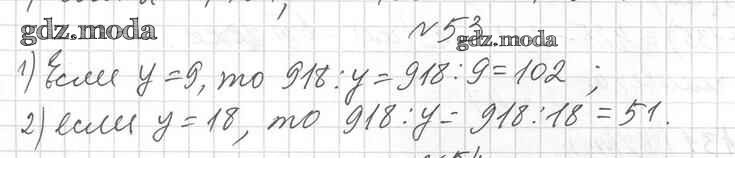 gdz.moda
№53
gdz.moda
1) Если y=9, то 918:y=918:9=102 ;
2) если y=18, то 918:y= 918:18=51.